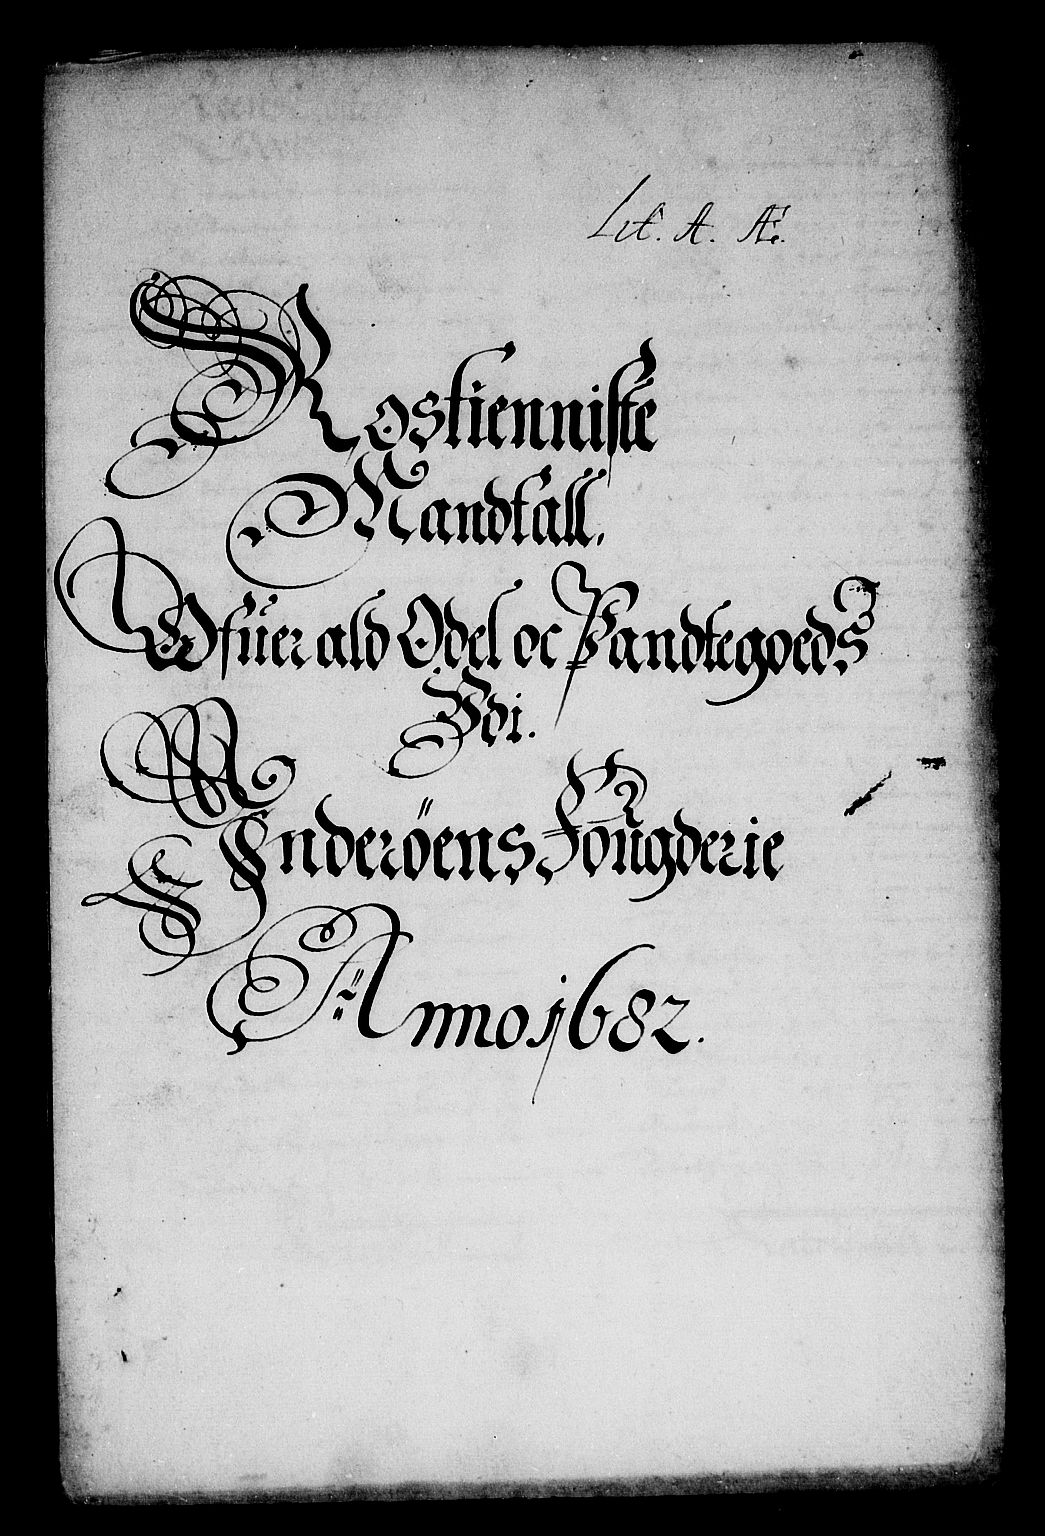 Lit. A. Æ.
Rostienniste
Mandtall.
Ofüer ald Odel oc Pandtegoeds
Udi.
Inderöens Fougderie
Anno 1682.